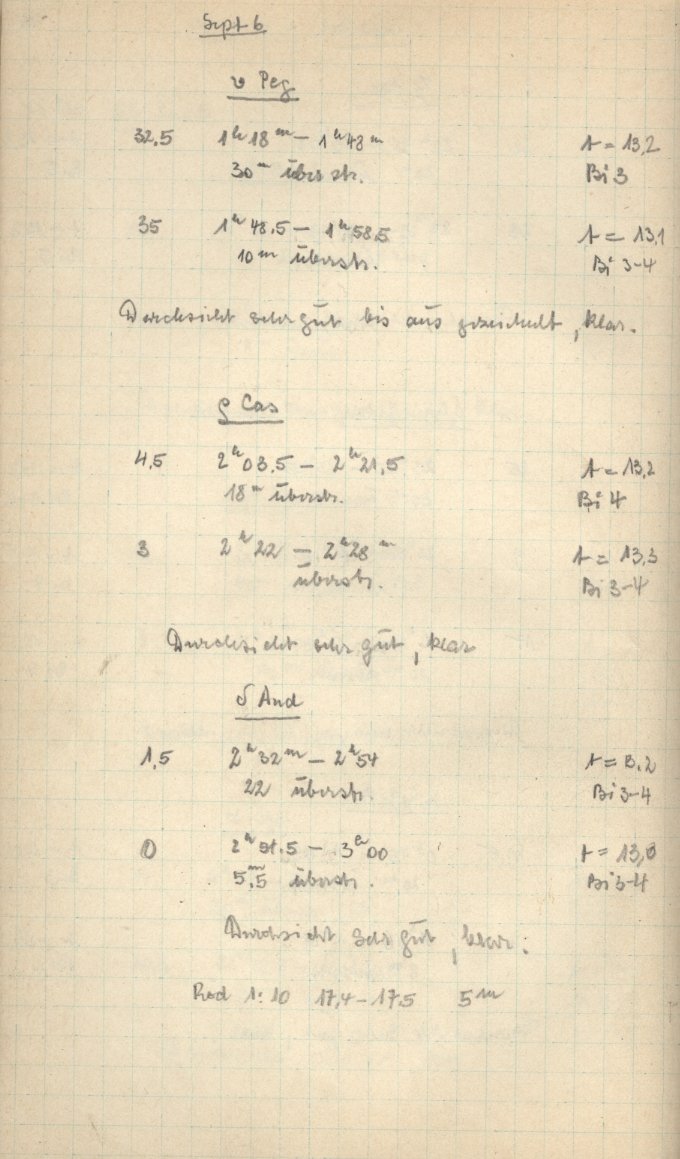 Sept 6
υ Peg
32,5 1ʰ18ᵐ – 1ʰ48ᵐ t = 13,2
30ᵐ überstr. Bi 3
35 1ʰ48.5 – 1ʰ58.5 t = 13,1
10ᵐ überstr. Bi 3-4
Durchsicht sehr gut bis ausgezeichnet, klar.
ρ Cas
4,5 2ʰ03.5 – 2ʰ21,5 t = 13,2
18ᵐ überstr. Bi 4
3 2ʰ22 – 2ʰ28ᵐ t = 13,3
überstr. Bi 3-4
Durchsicht sehr gut, klar
δ And
1,5 2ʰ32ᵐ – 2ʰ54 t = 13,2
22 überstr. Bi 3-4
0 2ʰ54.5 – 3ʰ00 t =
5ᵐ.5 überstr. Bi 3-4
Durchsicht sehr gut, klar.
Rod 1:10 17,4 – 17.5 5ᵐ